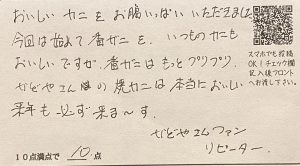 おいしい カニ を お腹いっぱい いただきました
今回は始めて 香ガニ を、いつものカニも
おいしいですが、香ガニは もっと プリプリ、
かどやさんの焼ガニは本当においしい
来年も 必ず 来る〜す。
かどやさんファン
リピーター。
10点満点で 10 点
スマホでも投稿
OK！チェック欄
記入後フロント
へお渡し下さい。